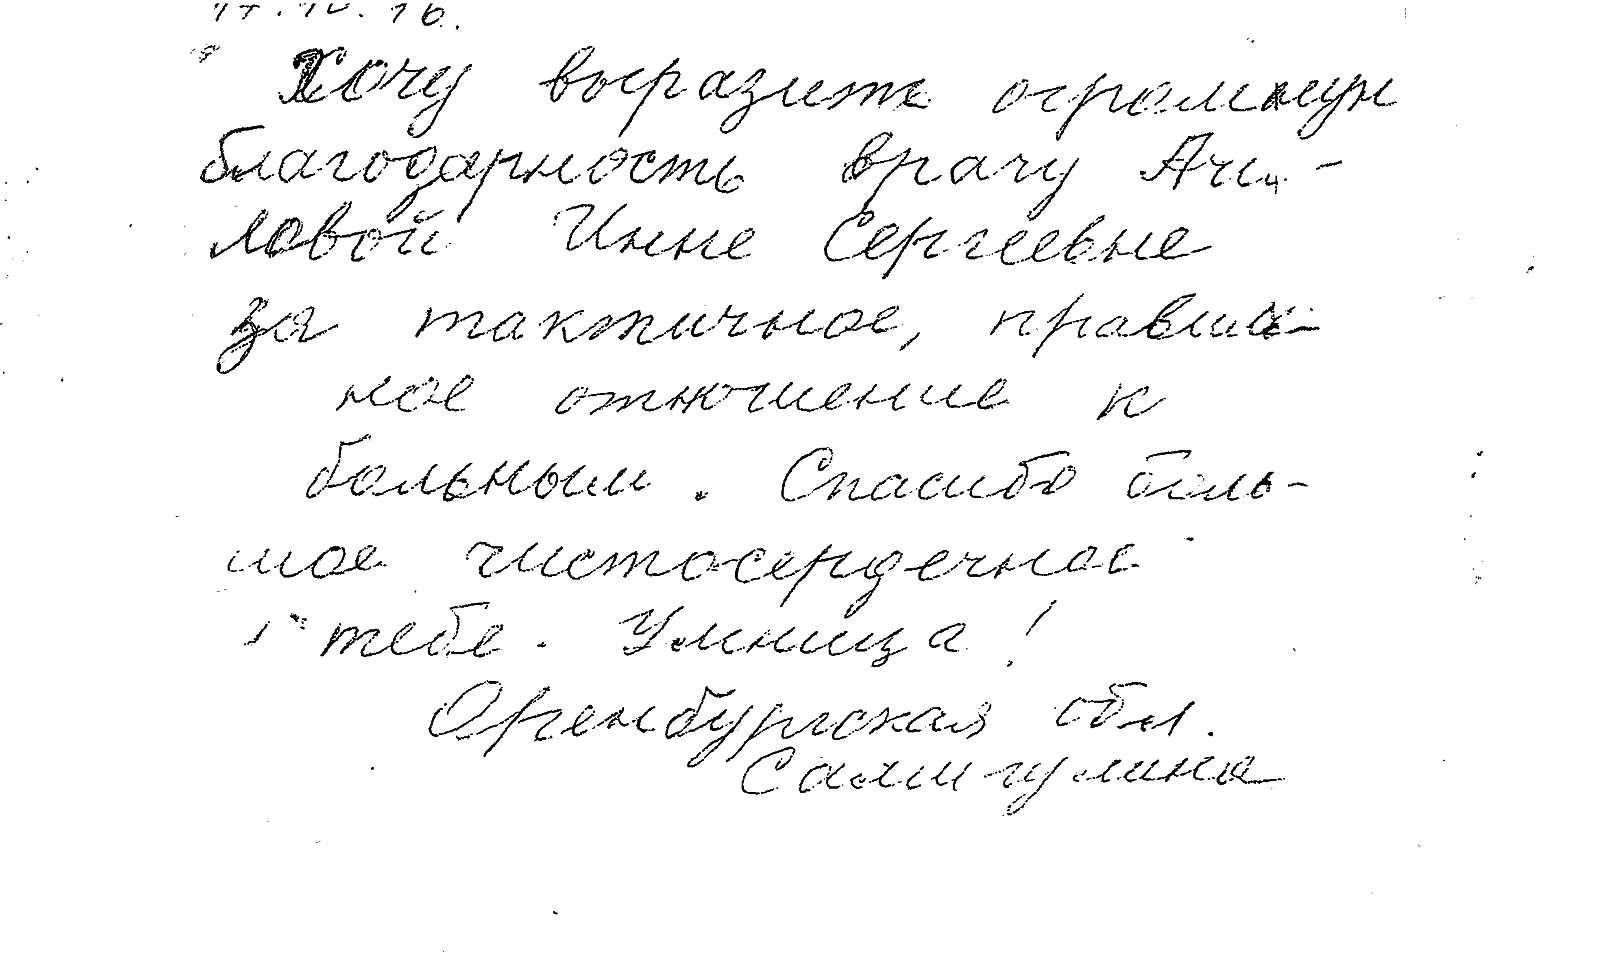 Хочу выразить огромную
благодарность врачу Ачи-
ловой Инне Сергеевне
за тактичное, правиль-
ное отношение к
больным. Спасибо боль-
шое чистосердечное
тебе. Умница!
Оренбургская обл.
Салимгулина